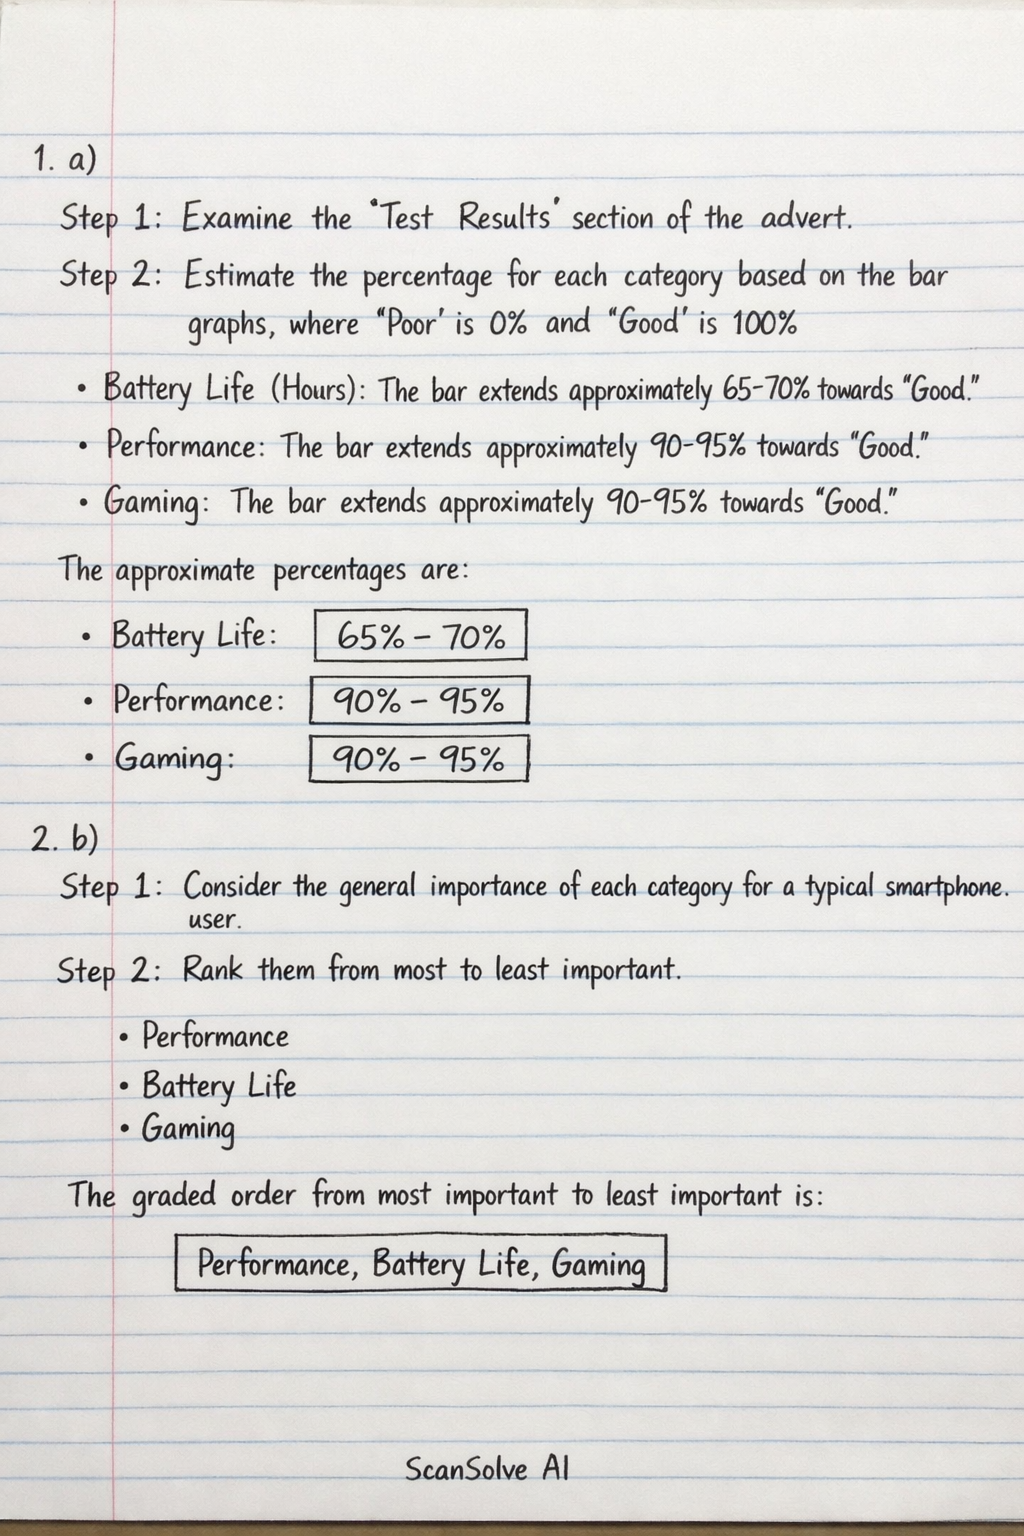 1. a)
Step 1: Examine the "Test Results' section of the advert.
Step 2: Estimate the percentage for each category based on the bar
graphs, where "Poor' is 0% and "Good' is 100%
• Battery Life (Hours): The bar extends approximately 65-70% towards "Good."
• Performance: The bar extends approximately 90-95% towards "Good."
• Gaming: The bar extends approximately 90-95% towards "Good."
The approximate percentages are:
• Battery Life: 65% – 70%
• Performance: 90% – 95%
• Gaming: 90% – 95%
2. b)
Step 1: Consider the general importance of each category for a typical smartphone.
user.
Step 2: Rank them from most to least important.
• Performance
• Battery Life
• Gaming
The graded order from most important to least important is:
Performance, Battery Life, Gaming
ScanSolve AI